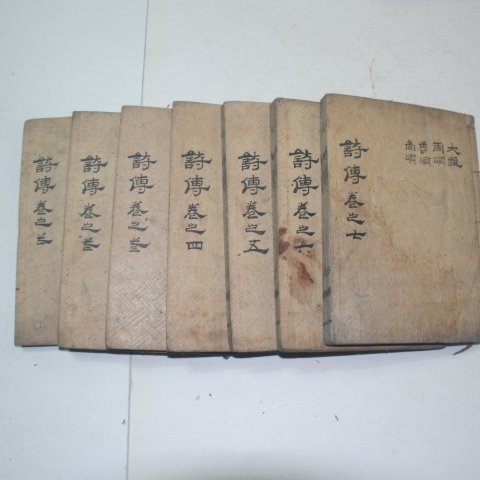 詩傳卷之
詩傳卷之
詩傳卷之
詩傳卷之四
詩傳卷之五
詩傳卷之六
大雅
周頌
魯頌
商頌
詩傳卷之七